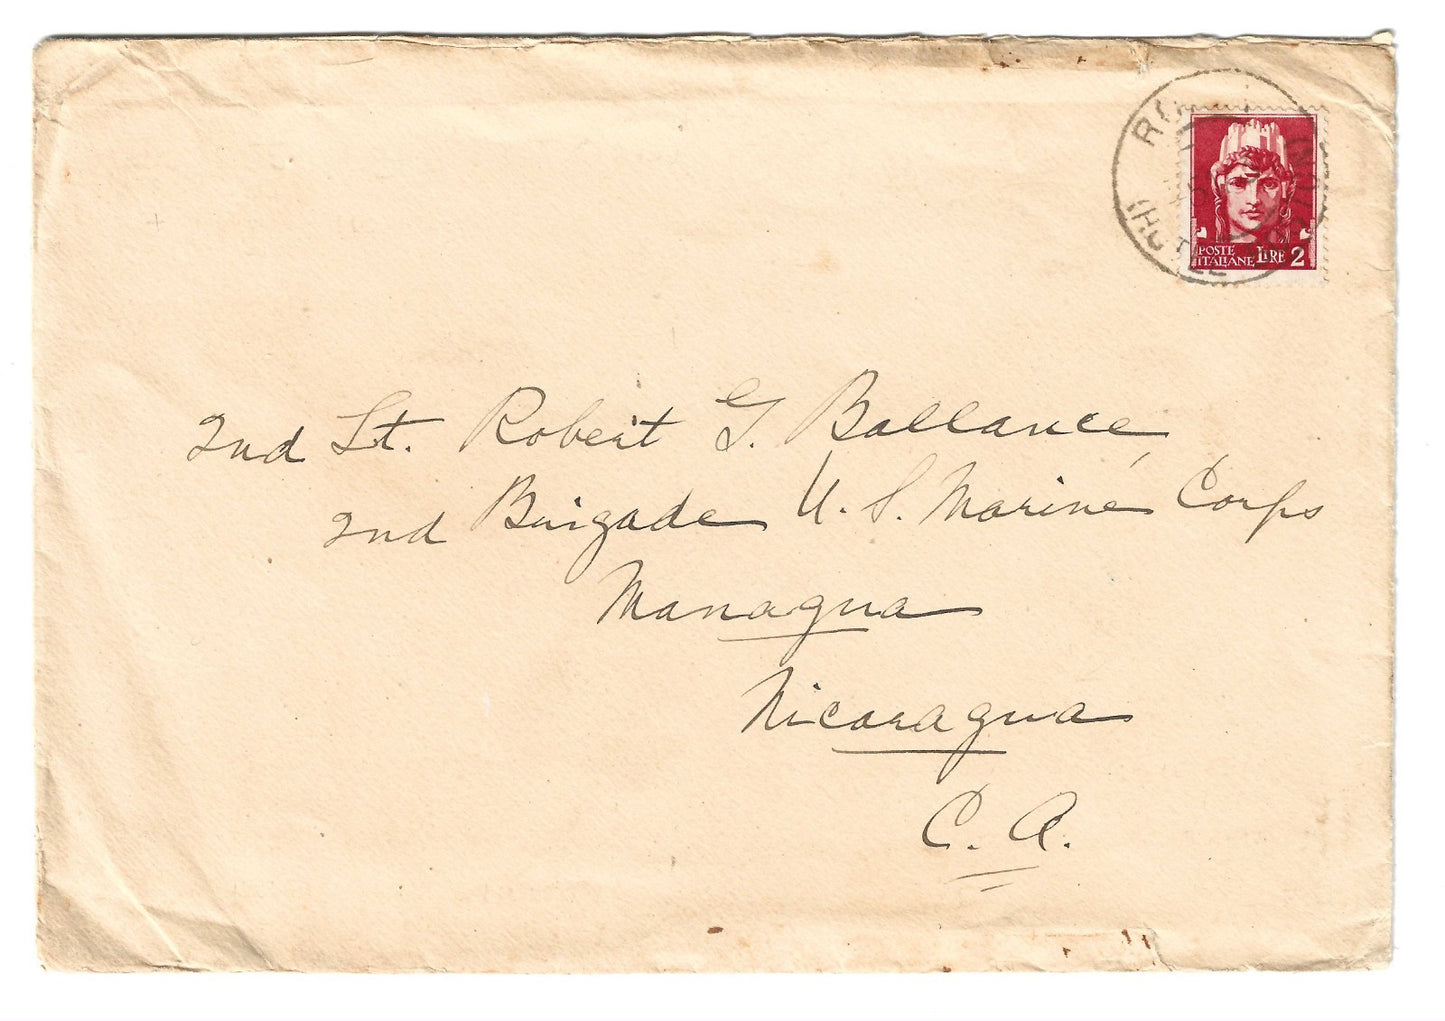 POSTE
ITALIANE LIRE 2
2nd Lt. Robert G. Ballance,
2nd Brigade U. S. Marine Corps
Managua
Nicaragua
C. A.